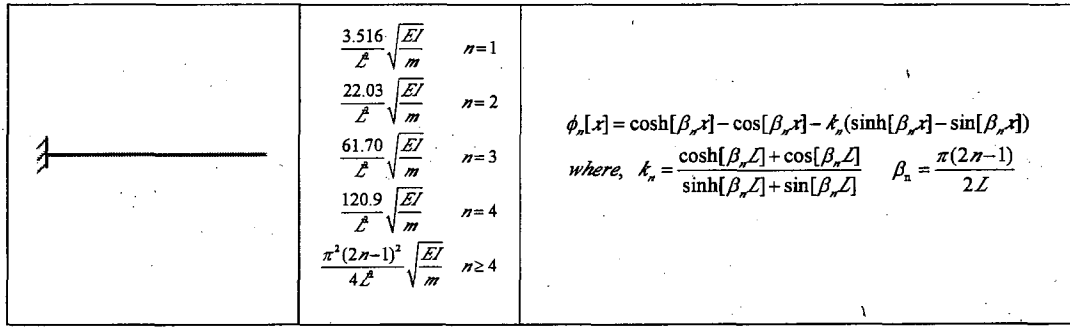 3.516/L² √(EI/m) n=1
22.03/L² √(EI/m) n=2
61.70/L² √(EI/m) n=3
120.9/L² √(EI/m) n=4
π²(2n−1)²/4L² √(EI/m) n≥4
ϕₙ[x]=cosh[βₙx]−cos[βₙx]−kₙ(sinh[βₙx]−sin[βₙx])
where, kₙ=(cosh[βₙL]+cos[βₙL])/(sinh[βₙL]+sin[βₙL]) βₙ=π(2n−1)/2L